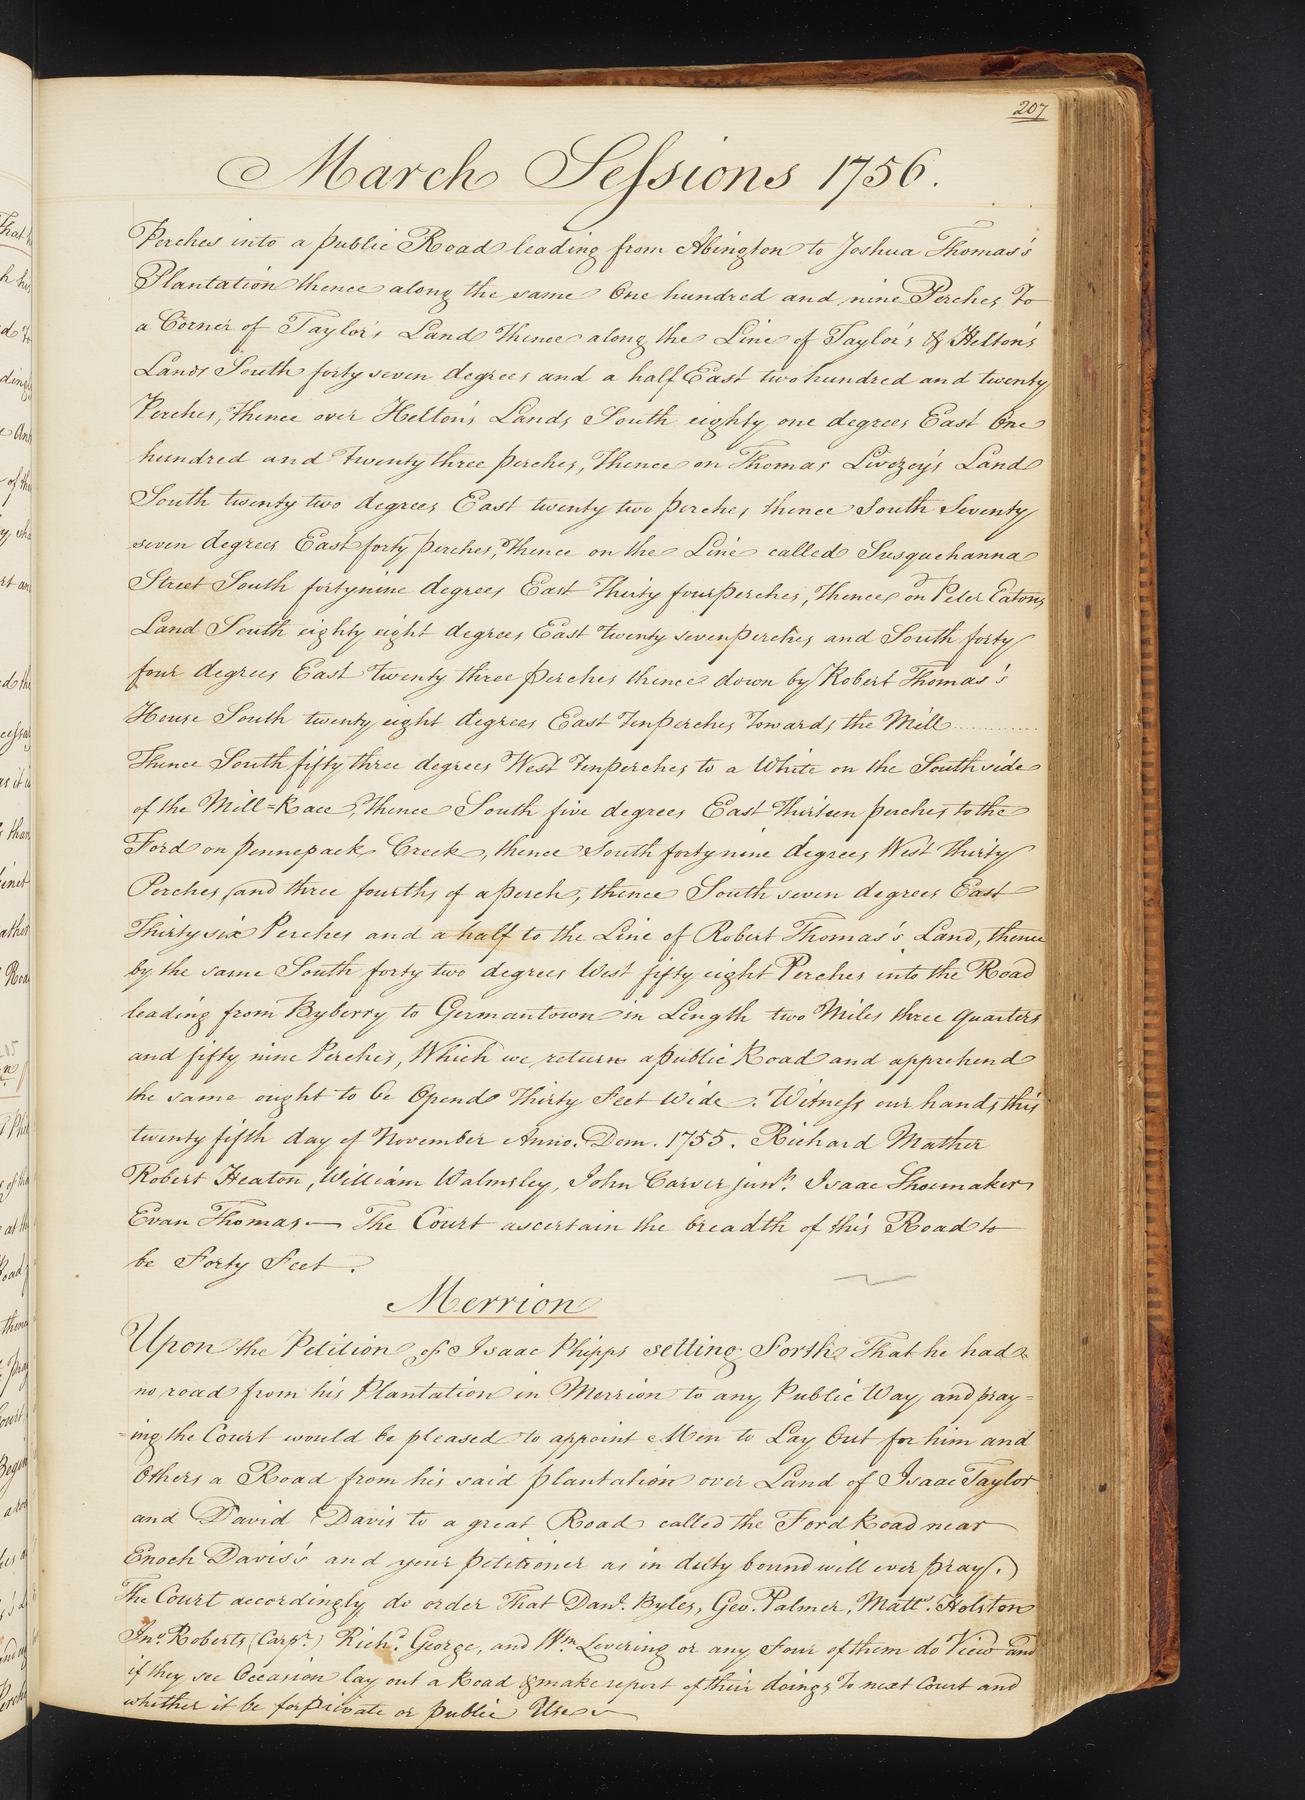 207
March Sessions 1756.
Perches into a public Road leading from Abington to Joshua Thomas's
Plantation thence along the same One hundred and nine Perches To
a Corner of Taylor's Land Thence along the Line of Taylor's & Helton's
Lands South forty seven degrees and a half East two hundred and twenty
Perches, Thence over Helton's Lands South eighty one degrees East One
hundred and twenty three perches, Thence on Thomas Livezey's Land
South twenty two degrees East twenty two perches thence South Seventy
seven degrees East forty perches, Thence on the Line called Susquehanna
Street South forty nine degrees East Thirty four perches, Thence on Peter Eatons
Land South eighty eight degrees East twenty seven perches and South forty
four degrees East twenty three perches thence down by Robert Thomas's
House South twenty eight degrees East Ten perches Towards the Mill
Thence South fifty three degrees West Ten perches to a White on the South side
of the Mill=Race, thence South five degrees East Thirteen perches to the
Ford on pennepack Creek, thence South forty nine degrees West Thirty
Perches and three fourths of a perch, thence South seven degrees East
Thirty six Perches and a half to the Line of Robert Thomas's Land, thence
by the same South forty two degrees West fifty eight Perches into the Road
leading from Byberry to Germantown in Length two Miles three quarters
and fifty nine Perches, Which we return a public Road and apprehend
the same ought to be Opend Thirty Feet Wide. Witness our hands this
twenty fifth day of November Anno. Dom. 1755. Richard Mather
Robert Heaton, William Walmsley, John Carver junr. Isaac Shoemaker
Evan Thomas — The Court ascertain the breadth of this Road to
be Forty Feet.
Merrion
Upon the Petition of Isaac Phipps setting Forth That he had
no road from his Plantation in Merrion to any Public Way and pray=
=ing the Court would be pleased to appoint Men to Lay Out for him and
Others a Road from his said plantation over Land of Isaac Taylor
and David Davis to a great Road called the Ford Road near
Enoch Davis's and your petitioner as in duty bound will ever pray.)
The Court accordingly do order That Danl. Byles, Geo. Palmer, Mattw. Holston
Jno. Roberts (Carpr.) Richd. George, and Wm. Levering or any Four of them do View and
if they see Occasion lay out a Road & make report of their doings To next Court and
whether it be for private or public Use